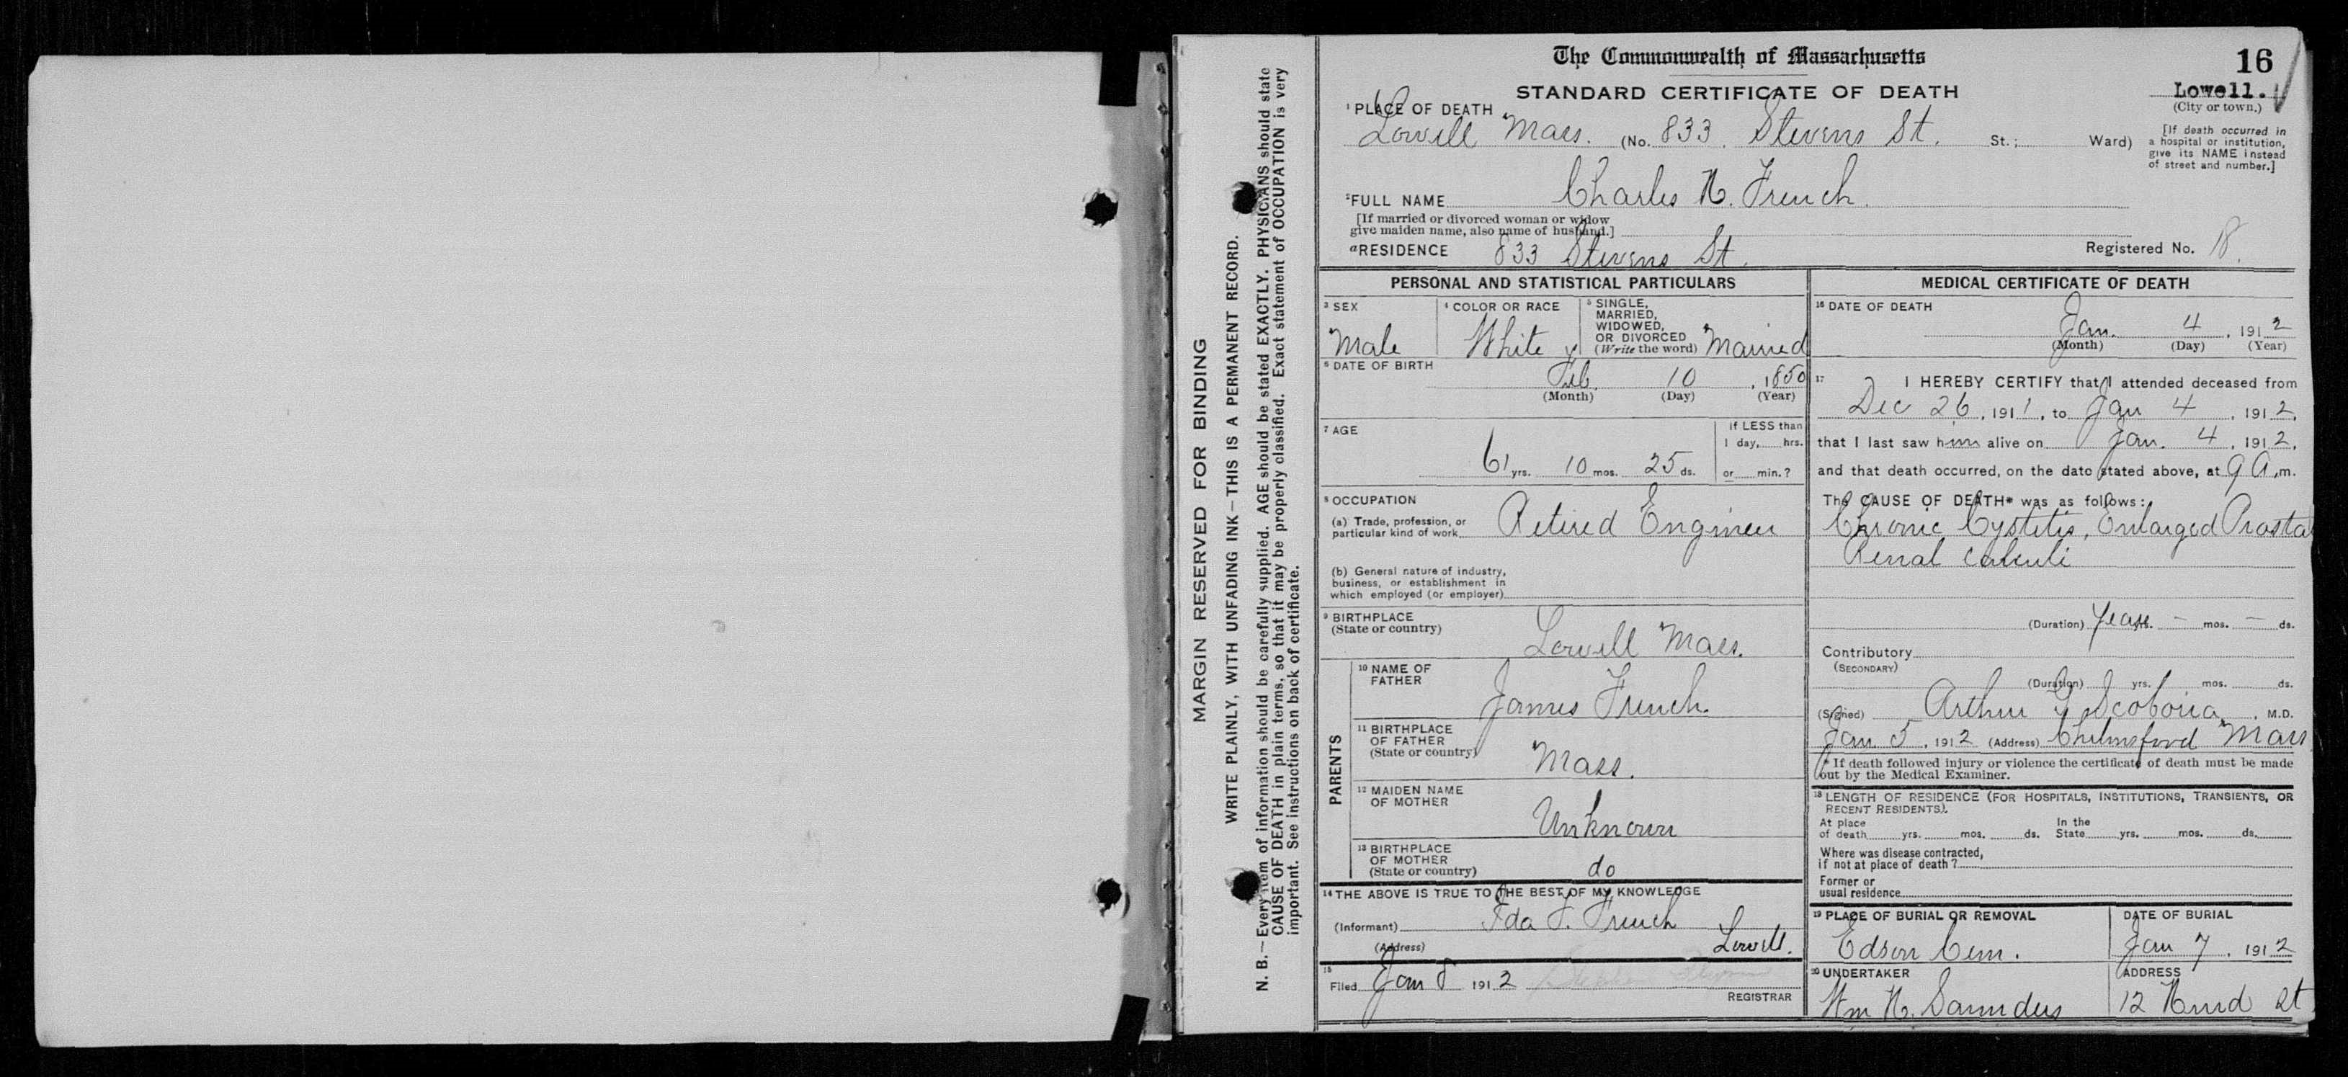 MARGIN RESERVED FOR BINDING
WRITE PLAINLY, WITH UNFADING INK—THIS IS A PERMANENT RECORD.
N. B.—Every item of information should be carefully supplied. AGE should be stated EXACTLY. PHYSICIANS should state
CAUSE OF DEATH in plain terms, so that it may be properly classified. Exact statement of OCCUPATION is very
important. See instructions on back of certificate.
The Commonwealth of Massachusetts
16
STANDARD CERTIFICATE OF DEATH
Lowell.
(City or town.)
1 PLACE OF DEATH
Lowell Mass. (No. 833 Stevens St. St.; Ward)
[If death occurred in
a hospital or institution,
give its NAME instead
of street and number.]
2 FULL NAME Charles H. French
[If married or divorced woman or widow
give maiden name, also name of husband.]
a RESIDENCE 833 Stevens St. Registered No. 18.
PERSONAL AND STATISTICAL PARTICULARS
3 SEX
Male
4 COLOR OR RACE
White
5 SINGLE,
MARRIED,
WIDOWED,
OR DIVORCED
(Write the word) Married
6 DATE OF BIRTH
Feb. 10, 1850
(Month) (Day) (Year)
7 AGE
61 yrs. 10 mos. 25 ds.
If LESS than
1 day, hrs.
or min.?
8 OCCUPATION
(a) Trade, profession, or
particular kind of work Retired Engineer
(b) General nature of industry,
business, or establishment in
which employed (or employer)
9 BIRTHPLACE
(State or country) Lowell Mass.
PARENTS
10 NAME OF
FATHER
James French.
11 BIRTHPLACE
OF FATHER
(State or country) Mass.
12 MAIDEN NAME
OF MOTHER
Unknown
13 BIRTHPLACE
OF MOTHER
(State or country) do
14 THE ABOVE IS TRUE TO THE BEST OF MY KNOWLEDGE
(Informant) Ida F. French
(Address) Lowell.
15
Filed Jan 8 1912
REGISTRAR
MEDICAL CERTIFICATE OF DEATH
16 DATE OF DEATH
Jan. 4, 1912
(Month) (Day) (Year)
17 I HEREBY CERTIFY that I attended deceased from
Dec 26, 1911, to Jan 4, 1912,
that I last saw him alive on Jan. 4, 1912,
and that death occurred, on the date stated above, at 9 A.m.
The CAUSE OF DEATH* was as follows:
Chronic Cystitis, Enlarged Prosta
Renal Calculi
(Duration) Years yrs. – mos. – ds.
Contributory
(SECONDARY)
(Duration) yrs. mos. ds.
(Signed) Arthur G Scoboria, M.D.
Jan 5, 1912 (Address) Chelmsford Mass
* If death followed injury or violence the certificate of death must be made
out by the Medical Examiner.
18 LENGTH OF RESIDENCE (FOR HOSPITALS, INSTITUTIONS, TRANSIENTS, OR
RECENT RESIDENTS).
At place
of death yrs. mos. ds.
In the
State yrs. mos. ds.
Where was disease contracted,
if not at place of death?
Former or
usual residence
19 PLACE OF BURIAL OR REMOVAL
Edson Cem.
DATE OF BURIAL
Jan 7, 1912
20 UNDERTAKER
Wm H. Saunders
ADDRESS
12 Hurd St